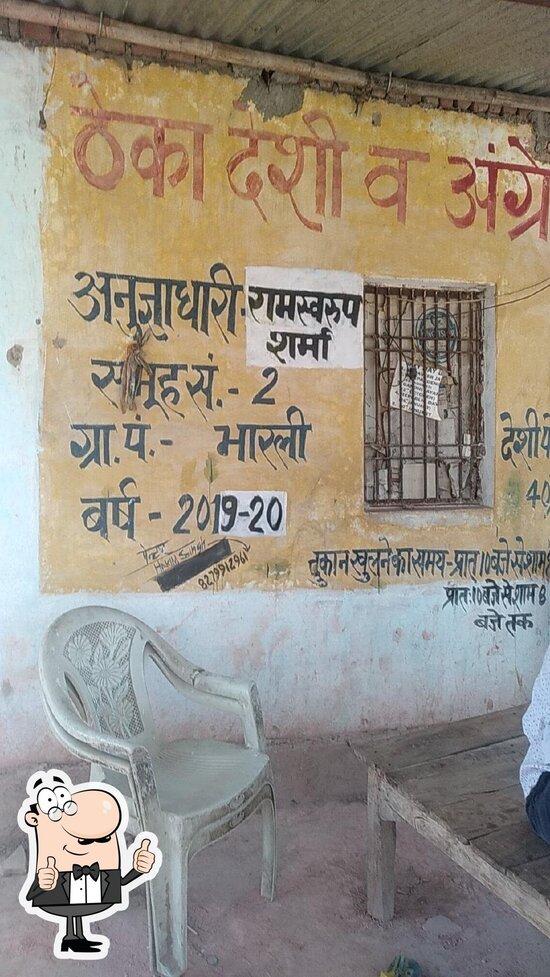 ठेका देशी व अंग्रे
अनुज्ञाधारी- रामस्वरुप
शर्मा
समूह सं.- 2
ग्रा.पं.- भारली
बर्ष - 2019-20
देशी
40
8279912961
दुकान खुलने का समय-प्रात 10 बजे से शाम
प्रातः 10 बजे से शाम 8
बजे तक